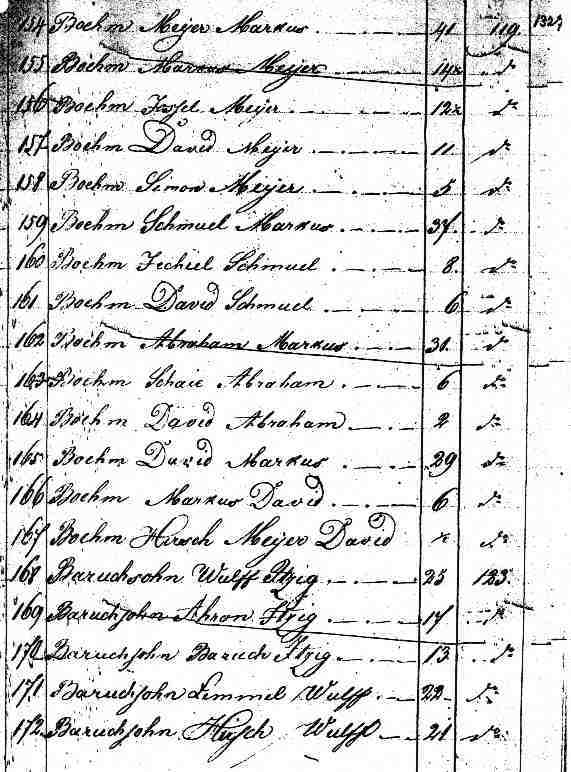 154 Boehm Meyer Markus 41 119 132
155 Boehm Marcus Meyer 14 dº
156 Boehm Israel Meyer 12 dº
157 Boehm David Meyer 11 dº
158 Boehm Simon Meyer 5 dº
159 Boehm Schmuel Markus 37 dº
160 Boehm Jechiel Schmuel 8 dº
161 Boehm David Schmuel 6 dº
162 Boehm Abraham Markus 31 dº
163 Boehm Schaie Abraham 6 dº
164 Boehm David Abraham 2 dº
165 Boehm David Markus 29 dº
166 Boehm Markus David 6 dº
167 Boehm Hirsch Meyer David dº
168 Baruchsohn Wulff Itzig 25 123
169 Baruchsohn Ahron Itzig 17 dº
170 Baruchsohn Baruch Itzig 13 dº
171 Baruchsohn Lemmel Wulff 22 dº
172 Baruchsohn Hirsch Wulff 21 dº